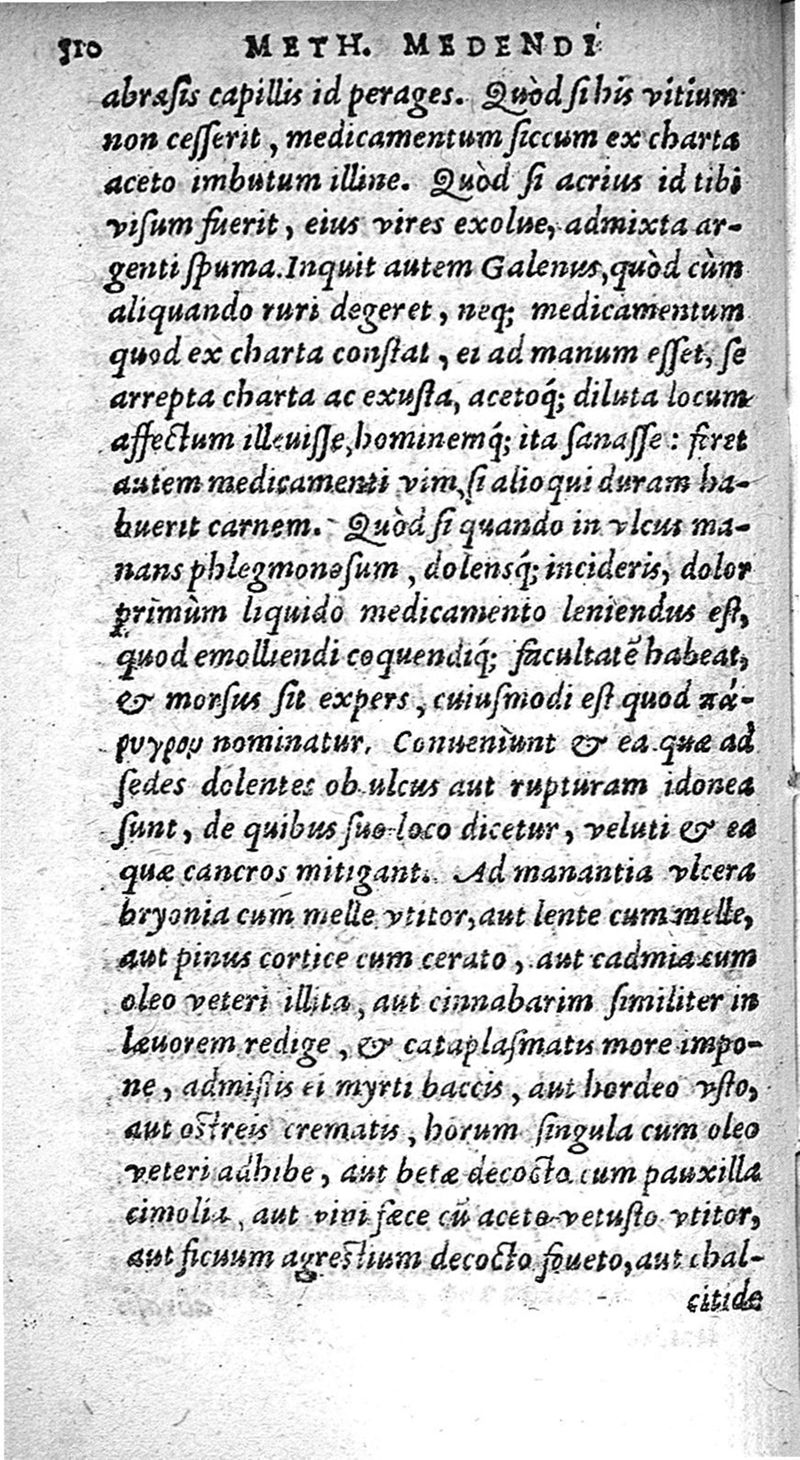 510 METH. MEDENDI
abrasis capillis id perages. Quòd si his vitium
non cesserit, medicamentum siccum ex charta
aceto imbutum illine. Quòd si acrius id tibi
visum fuerit, eius vires exolue, admixta ar-
genti spuma. Inquit autem Galenus, quòd cùm
aliquando ruri degeret, neq; medicamentum
quod ex charta constat, ei ad manum esset, se
arrepta charta ac exusta, acetoq́; diluta locum
affectum illeuisse, hominemq́; ita sanasse: feret
autem medicamenti vim, si alioqui duram ha-
buerit carnem. Quòd si quando in vlcus ma-
nans phlegmonosum, dolensq́; incideris, dolor
primùm liquido medicamento leniendus est,
quod emolliendi coquendiq́; facultatẽ habeat,
& morsus sit expers, cuiusmodi est quod πά-
ρυγρον nominatur. Conueniunt & ea quæ ad
sedes dolentes ob ulcus aut rupturam idonea
sunt, de quibus suo loco dicetur, veluti & ea
quæ cancros mitigant. Ad manantia vlcera
bryonia cum melle vtitor, aut lente cum melle,
aut pinus cortice cum cerato, aut cadmia cum
oleo veteri illita, aut cinnabarim similiter in
læuorem redige, & cataplasmatis more impo-
ne, admistis ei myrti baccis, aut hordeo vsto,
aut ostreis crematis, horum singula cum oleo
veteri adhibe, aut betæ decocto cum pauxilla
cimolia, aut vini fæce cũ aceto vetusto vtitor,
aut ficuum agrestium decocto foueto, aut chal-
citide